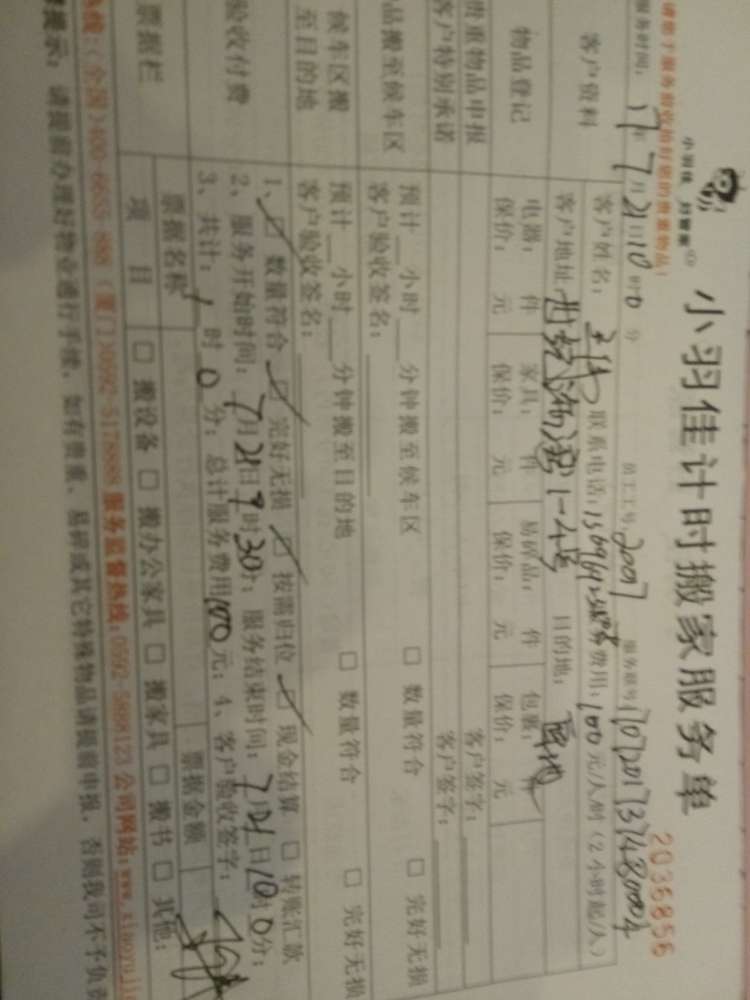 小羽佳 好管家
小羽佳计时搬家服务单
2036856
请您于服务前收拾好您的贵重物品！
服务时间：17年7月21日10时0分 员工工号：2007 服务账号
客户资料
客户姓名： 联系电话： 服务费用：100元/人/时（2小时起/人）
客户地址： 1-4号 目的地：
物品登记
电器： 件 家具： 件 易碎品： 件 包裹： 件
保价： 元 保价： 元 保价： 元 保价： 元
贵重物品申报 客户签字：
客户特别承诺 客户签字：
物品搬至候车区
预计 小时 分钟搬至候车区 □ 数量符合 □ 完好无损
客户验收签名：
候车区搬至目的地
预计 小时 分钟搬至目的地 □ 数量符合 □ 完好无损
客户验收签名：
验收付费
1、☑ 数量符合 ☑ 完好无损 ☑ 按需归位 ☑ 现金结算 □ 转账汇款
2、服务开始时间：7月21日9时30分；服务结束时间：7月21日10时0分；
3、共计：1时0分；总计服务费用100元；4、客户验收签字：
票据栏
票据名称 票据金额
项目 □ 搬设备 □ 搬办公家具 □ 搬家具 □ 搬书 □ 其他：
热线：(全国)400-6655-888 (厦门)0592-5178888 服务监督热线：0592-5888123 公司网站：www.xiaoyujia
提示：请提前办理好物业通行手续，如有贵重、易碎或其它特殊物品请提前申报，否则我司不予负责